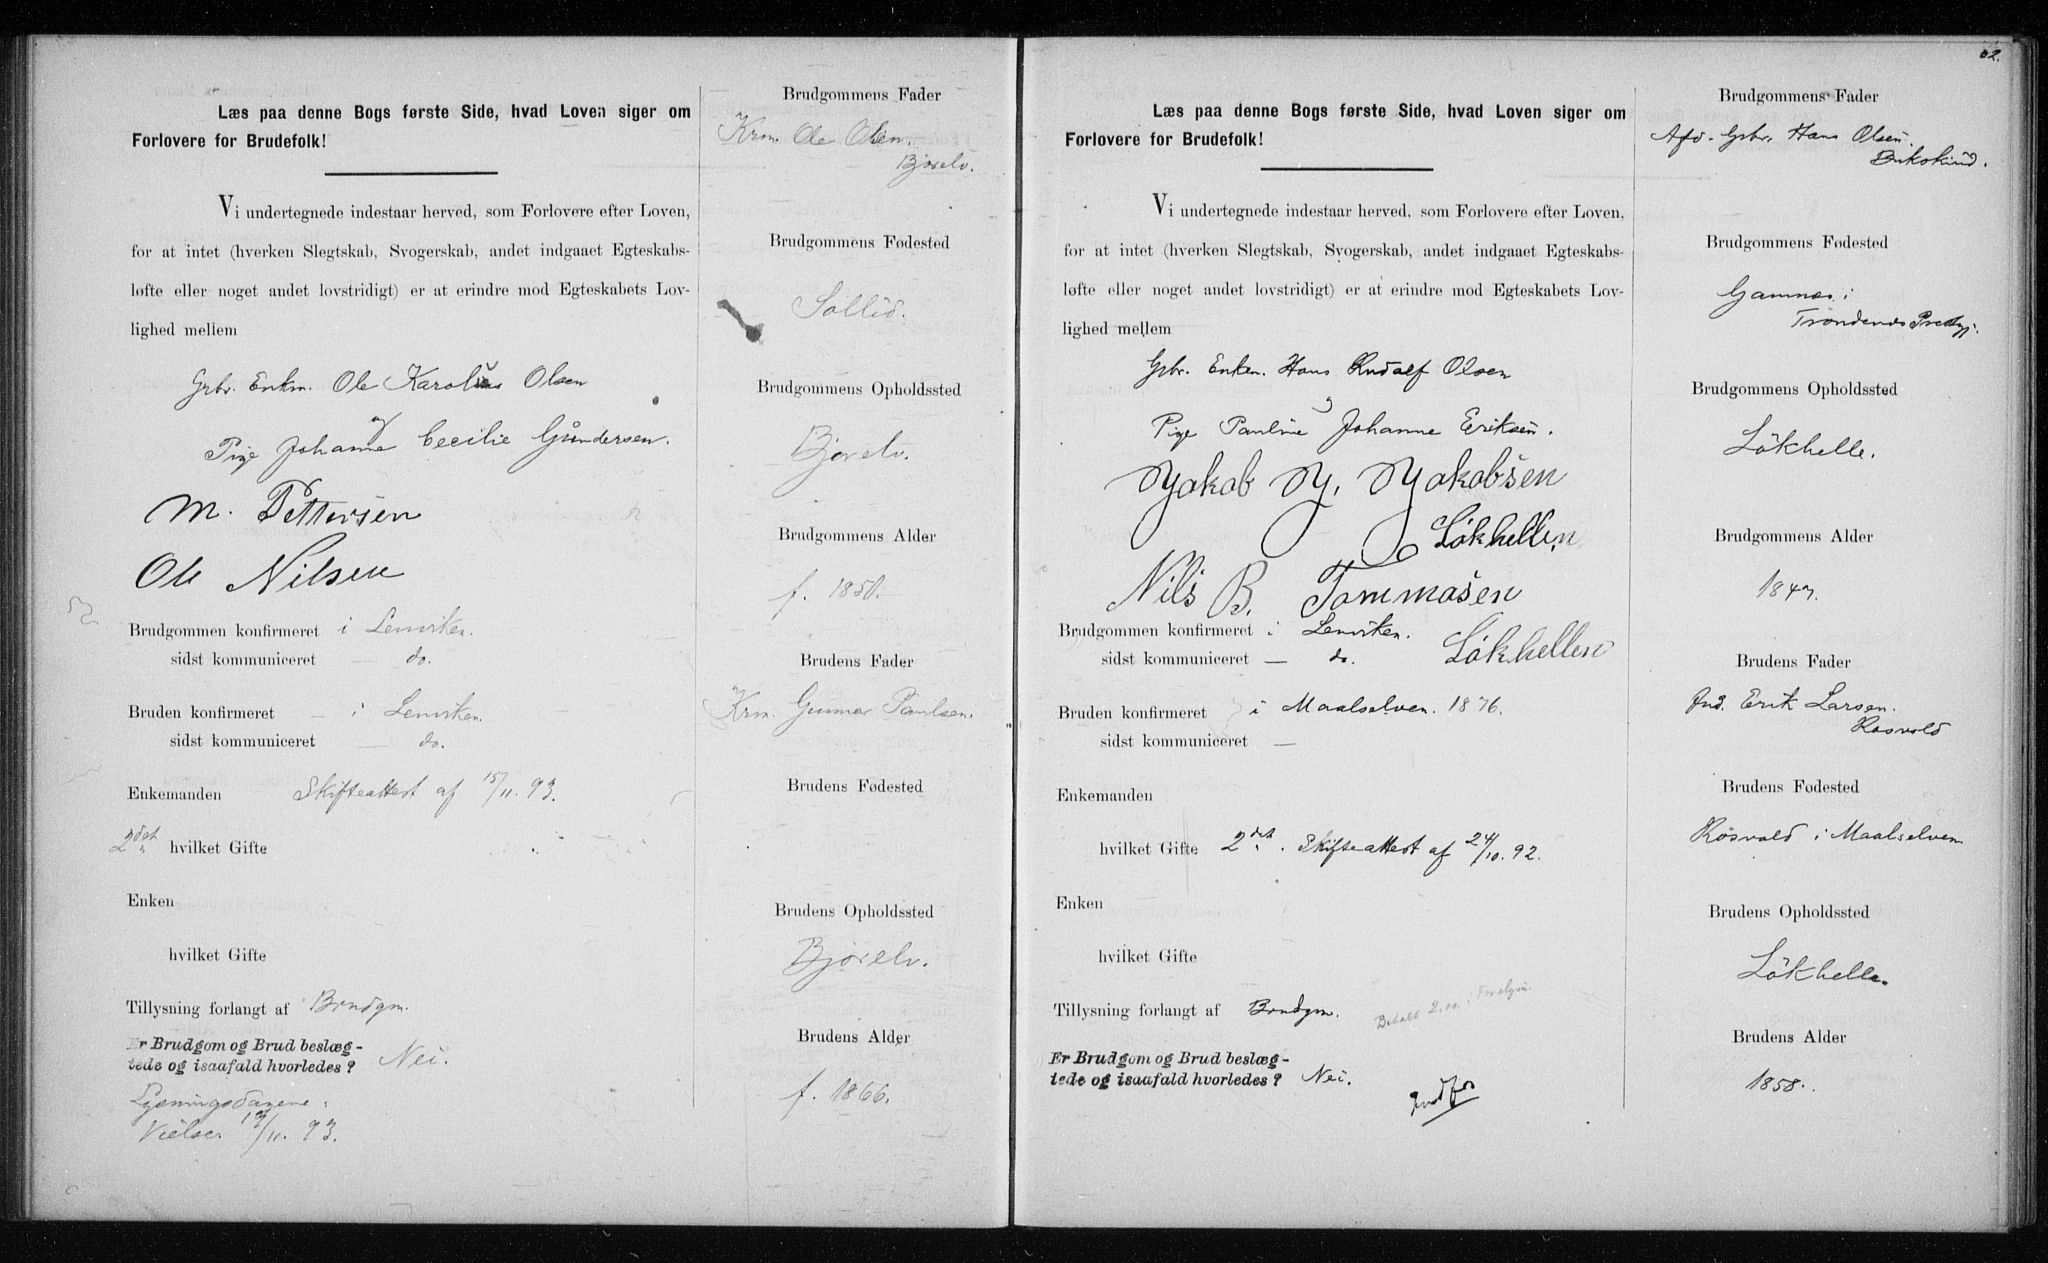 Læs paa denne Bogs første Side, hvad Loven siger om
Forlovere for Brudefolk!
Vi undertegnede indestaar herved, som Forlovere efter Loven,
for at intet (hverken Slegtskab, Svogerskab, andet indgaaet Egteskabs-
løfte eller noget andet lovstridigt) er at erindre mod Egteskabets Lov-
lighed mellem
Grbr. Enkm. Ole Karolius Olsen
og
Pige Johanne Cecilie Gundersen.
M. Pettersen
Ole Nilsen
Brudgommen konfirmeret i Lenviken.
sidst kommuniceret — do.
Bruden konfirmeret — i Lenviken.
sidst kommuniceret — do.
Enkemanden Skifteattest af 15/11. 93.
2det hvilket Gifte
Enken
hvilket Gifte
Tillysning forlangt af Brudgm.
Er Brudgom og Brud beslæg-
tede og isaafald hvorledes? Nei.
Lysningsdagene:
Vielser 19/11. 93.
Brudgommens Fader
Krm. Ole Olsen.
Bjorelv.
Brudgommens Fødested
Sollid.
Brudgommens Opholdssted
Bjorelv.
Brudgommens Alder
f. 1850.
Brudens Fader
Krm. Gunnar Paulsen.
Brudens Fødested
Brudens Opholdssted
Bjorelv.
Brudens Alder
f. 1866.
62.
Læs paa denne Bogs første Side, hvad Loven siger om
Forlovere for Brudefolk!
Vi undertegnede indestaar herved, som Forlovere efter Loven,
for at intet (hverken Slegtskab, Svogerskab, andet indgaaet Egteskabs-
løfte eller noget andet lovstridigt) er at erindre mod Egteskabets Lov-
lighed mellem
Grbr. Enkem. Hans Rudolf Olsen
og
Pige Pauline Johanne Eriksen.
Jakob J. Jakobsen
Løkhellen
Nils B. Tommasen
Brudgommen konfirmeret i Lenviken.
sidst kommuniceret — do. Løkhellen
Bruden konfirmeret i Maalselven. 1876.
sidst kommuniceret —
Enkemanden
hvilket Gifte 2det. Skifteattest af 24/10. 92.
Enken
hvilket Gifte
Tillysning forlangt af Brudgm. Betalt 2.00
Er Brudgom og Brud beslæg-
tede og isaafald hvorledes? Nei.
Brudgommens Fader
Afd. Grbr. Hans Olsen.
Bukskind.
Brudgommens Fødested
Gamnes i
Trondenæs Prestgj.
Brudgommens Opholdssted
Løkhelle.
Brudgommens Alder
1847.
Brudens Fader
Ind. Erik Larsen.
Rosvold
Brudens Fødested
Rosvold i Maalselven
Brudens Opholdssted
Løkhelle.
Brudens Alder
1858.